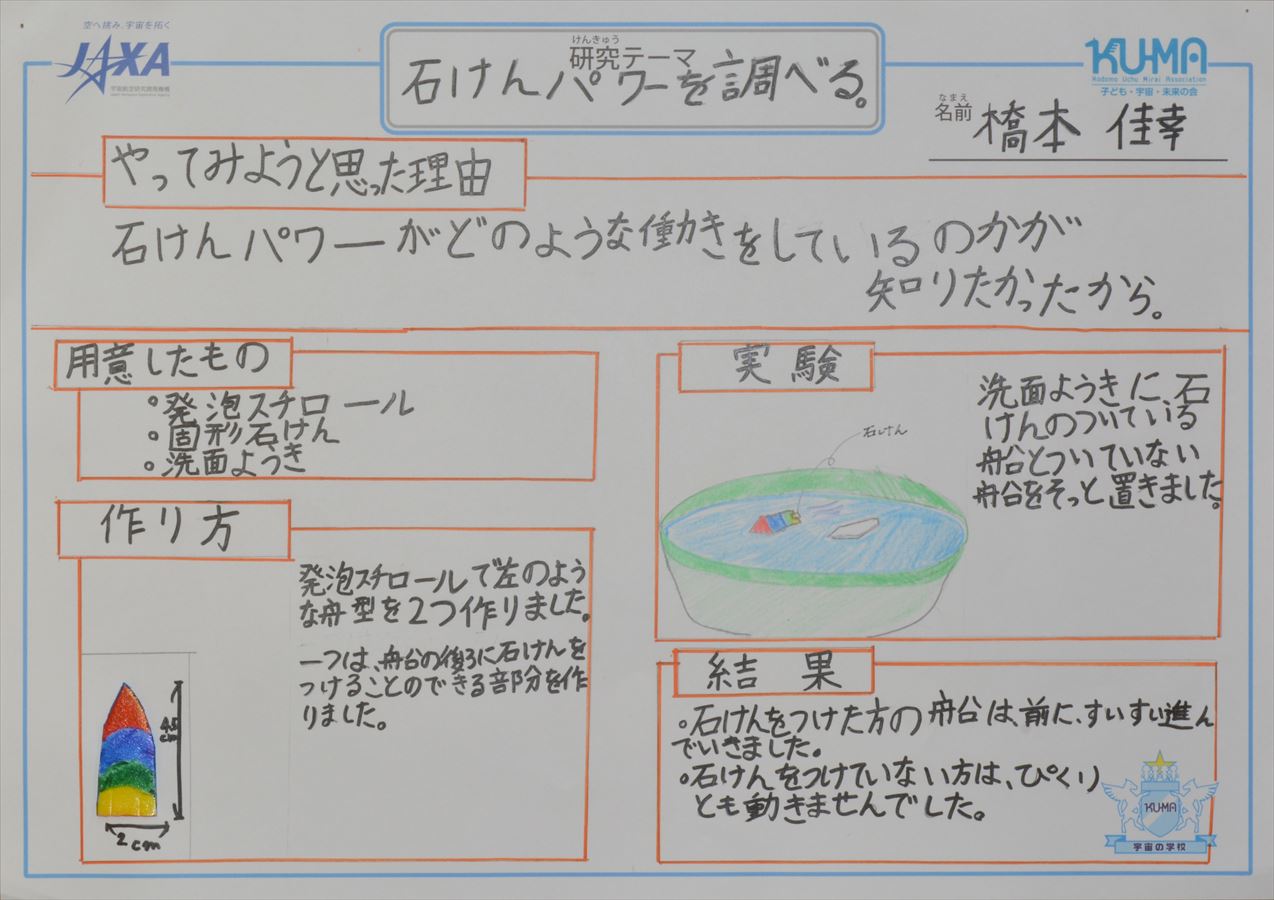 空へ挑み、宇宙を拓く
JAXA
宇宙航空研究開発機構
Japan Aerospace Exploration Agency
けんきゅう
研究テーマ
石けんパワーを調べる。
KU-MA
Kodomo Uchu Mirai Association
子ども・宇宙・未来の会
なまえ
名前 橋本 佳幸
やってみようと思った理由
石けんパワーがどのような働きをしているのかが
知りたかったから。
用意したもの
・発泡スチロール
・固形石けん
・洗面ようき
作り方
発泡スチロールで左のよう
な舟型を2つ作りました。
一つは、舟台の後ろに石けんを
つけることのできる部分を作
りました。
4.5
cm
2cm
実験
石けん
洗面ようきに、石
けんのついている
舟台とついていない
舟台をそっと置きました。
結果
・石けんをつけた方の舟台は、前に、すいすい進ん
でいきました。
・石けんをつけていない方は、ぴくり
とも動きませんでした。
KU-MA
宇宙の学校